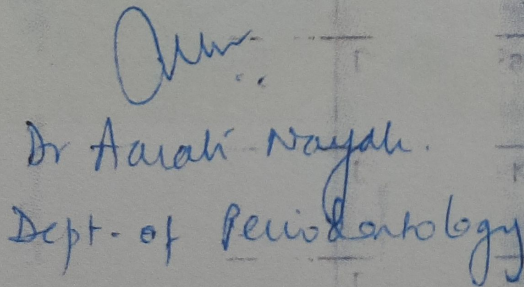 Dr Aarati Nayak.
Dept. of Periodontology